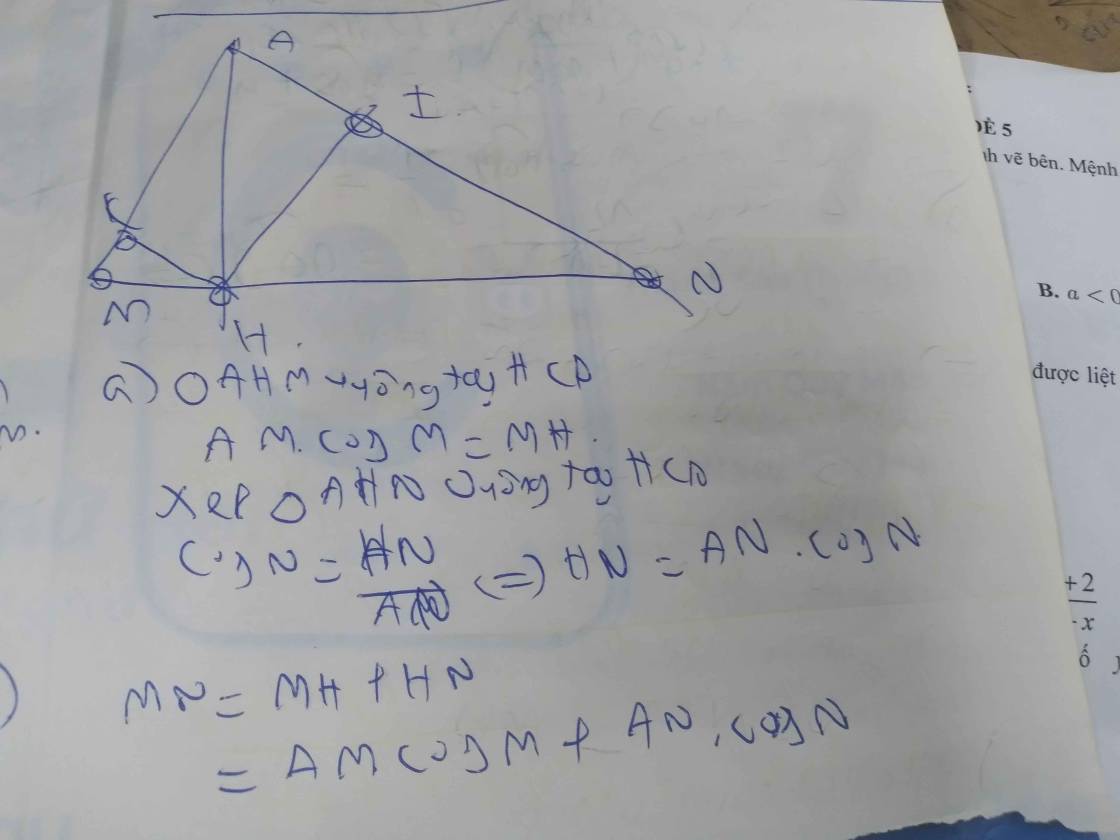 A
I
K
M
H
N
a) △ AHM vuông tại H có
AM. cos M = MH.
Xét △ AHN vuông tại H có
cos N = HN/AN (=) HN = AN . cos N
MN = MH + HN
= AM cos M + AN . cos N
m.
ĐỀ 5
nh vẽ bên. Mệnh
B. a < 0
được liệt
+ 2
- x
ố